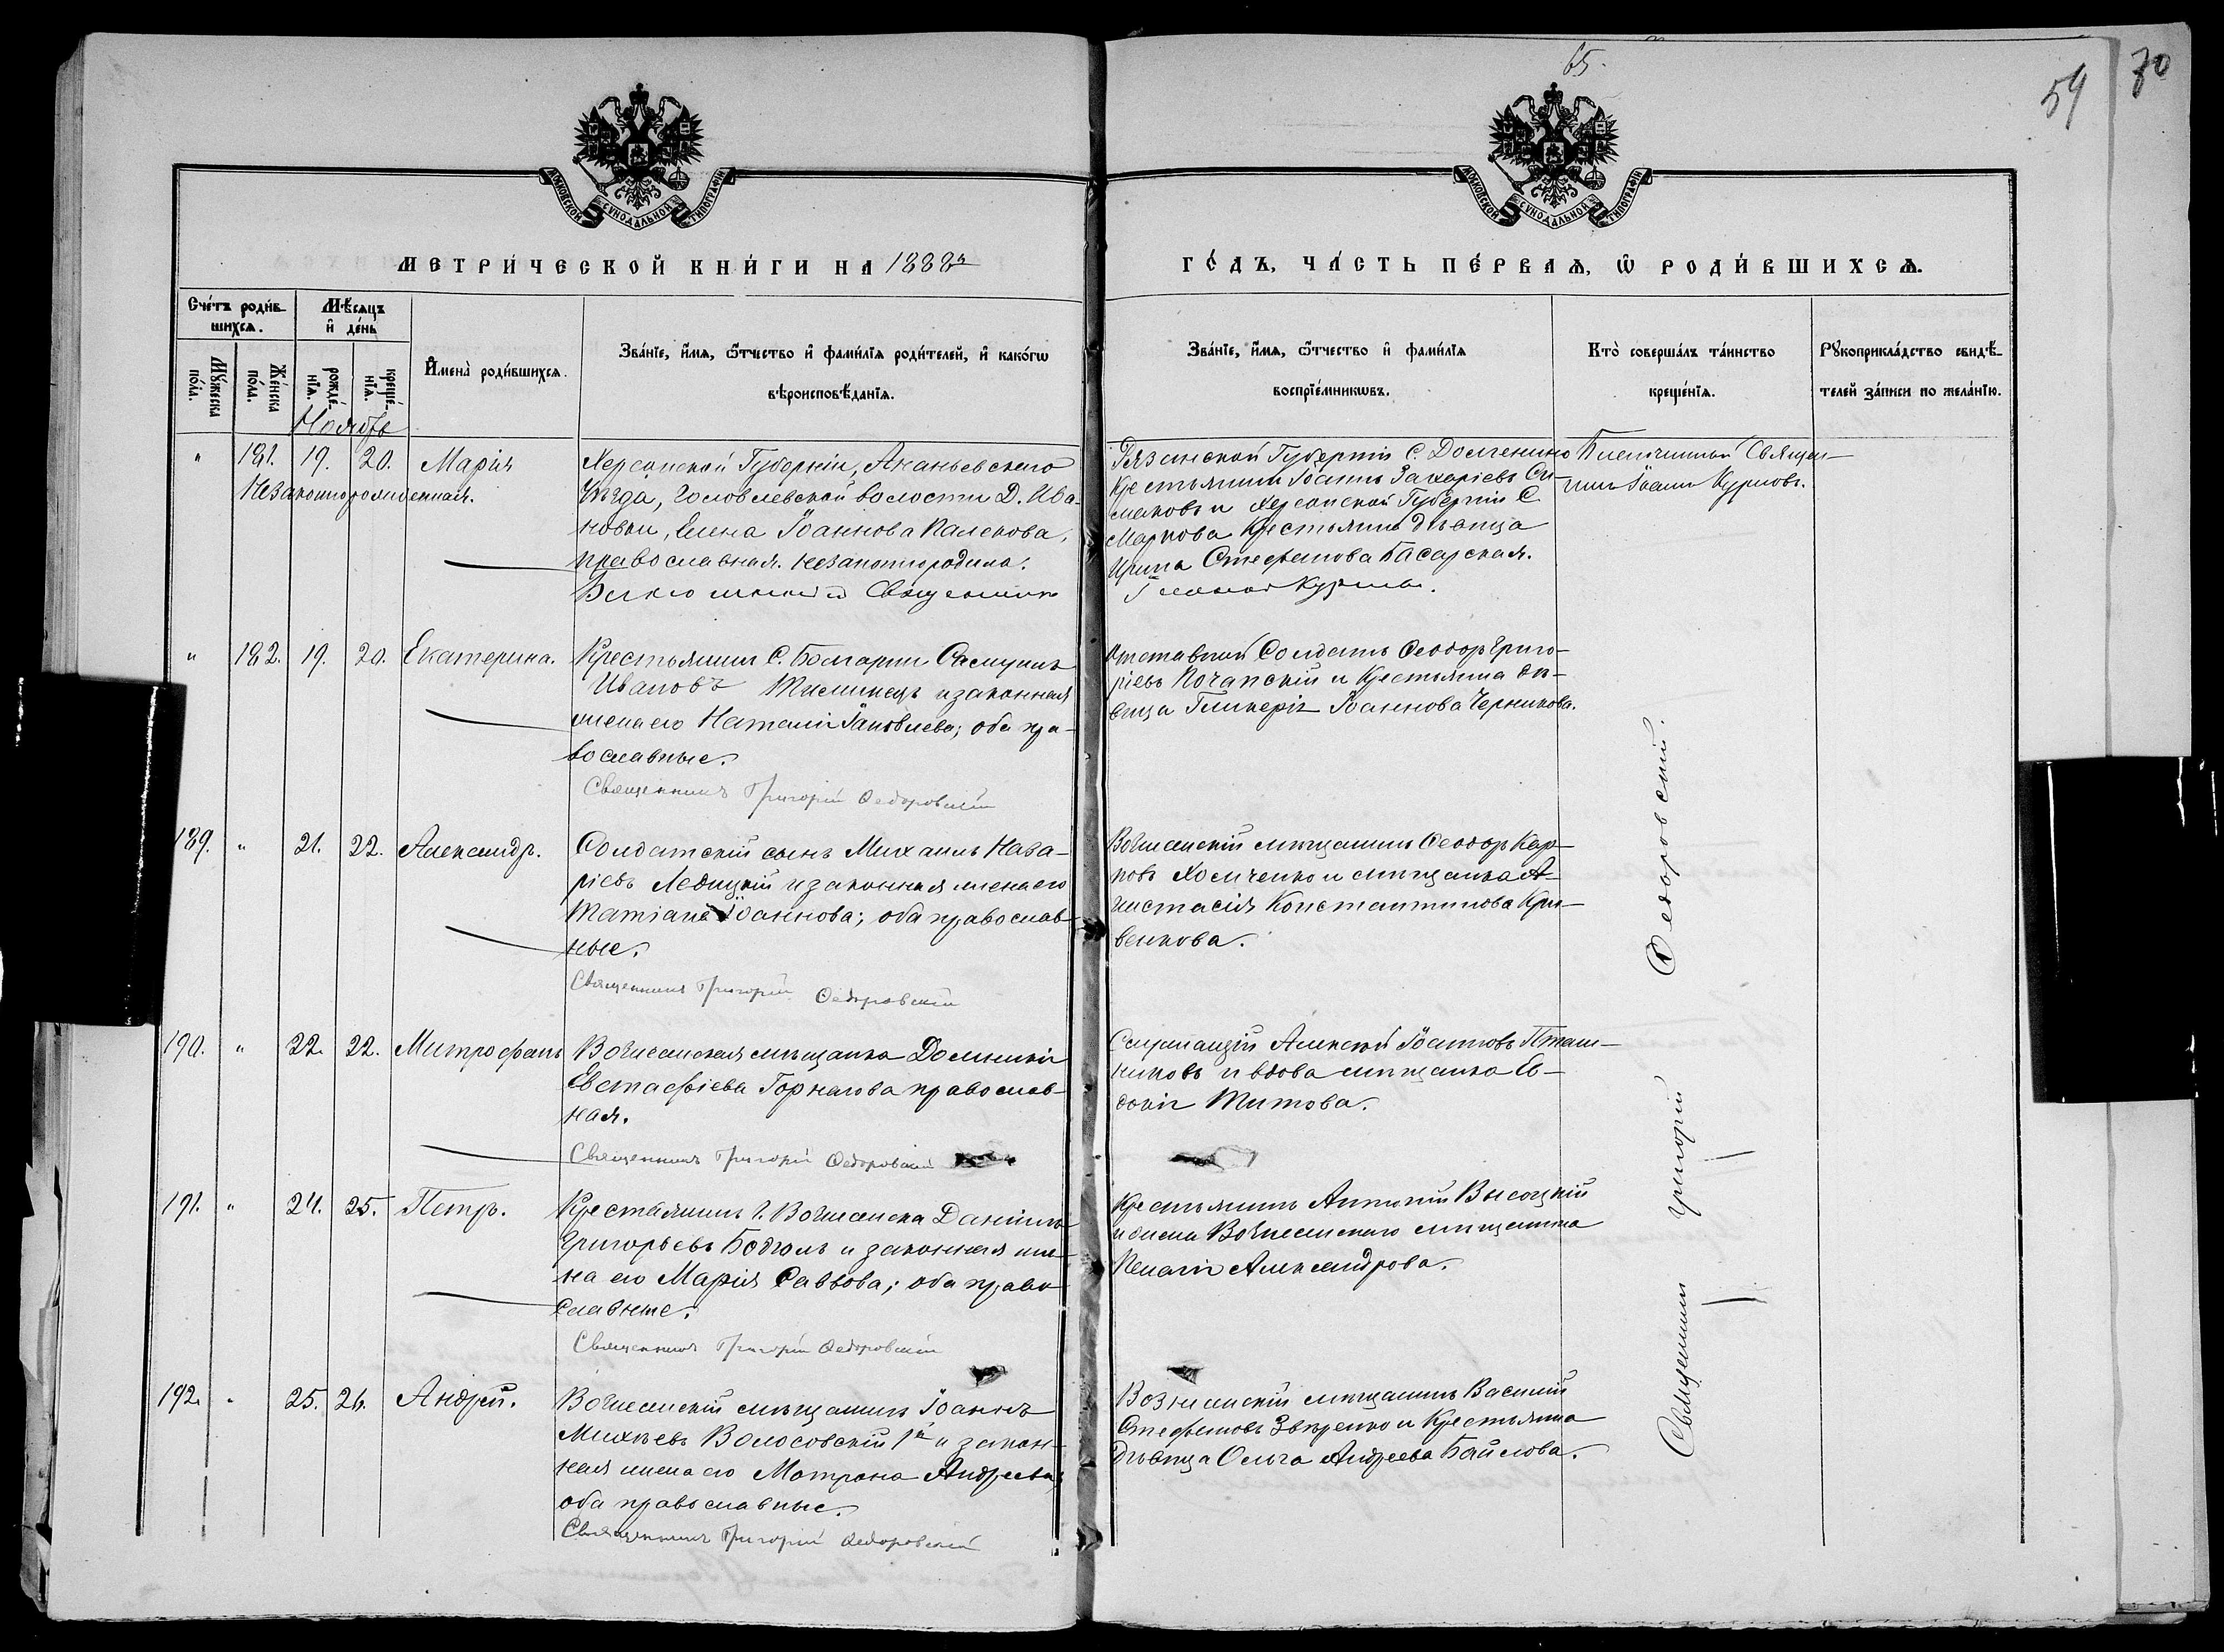 65.
59
70
МОСКОВСКОЙ СУНОДАЛЬНОЙ ТИПОГРАФІИ
МОСКОВСКОЙ СУНОДАЛЬНОЙ ТИПОГРАФІИ
МЕТРИ́ЧЕСКОЙ КНИ́ГИ НА 1888й
ГО́ДЪ, ЧА́СТЬ ПЕ́РВАѦ, Ѽ РОДИ́ВШИХСѦ.
Сче́тъ роди́в-
шихсѧ.
Мѣ́сѧцъ
и҆ де́нь
Мꙋ́жеска по́ла.
Же́нска по́ла.
рожде́-
нїѧ.
креще́-
нїѧ.
И҆мена̀ роди́вшихсѧ.
Зва́нїе, и҆́мѧ, ѻ҆́тчество и҆ фами́лїѧ роди́телей, и҆ како́гѡ
вѣроисповѣ́данїѧ.
Зва́нїе, и҆́мѧ, ѻ҆́тчество и҆ фами́лїѧ
воспрїе́мникѡвъ.
Кто̀ соверша́лъ та́инство
креще́нїѧ.
Рꙋкоприкла́дство свидѣ́-
телей за́писи по жела́нїю.
Ноябрь
" 181. 19. 20. Марія
Незаконнорожденная.
Херсонской Губерніи, Ананьевскаго
Уѣзда, Головлевской волости Д. Ива-
новки, Елена Іоаннова Палекова,
православная. незаконнородила.
Священник
Рязанской Губерніи С. Долгенино
Крестьянинъ Іоаннъ Захаріевъ Си
маковъ и Херсонской Губерніи С.
Маркова Крестьянка дѣвица
Ирина Стефанова Басарская.
Священ-
никъ Іоаннъ Курловъ.
" 182. 19. 20. Екатерина.
Крестьянинъ С. Болгарки Самуилъ
Ивановъ и законная
жена его Наталія Іаковлева; оба пра-
вославные.
Священникъ Григорій Ѳедоровскій
Отставной Солдатъ Ѳеодоръ Григо-
ріевъ Почапскій и Крестьянка дѣ-
вица Гликерія Іоаннова Черникова.
189. " 21. 22. Александръ.
Солдатскій сынъ Михаилъ Наза-
ріевъ Ледицкій и законная жена его
Татіана Іоаннова; оба православ-
ные.
Священникъ Григорій Ѳедоровскій
Вознесенскій мѣщанинъ Ѳеодоръ Кар-
повъ Хомченко и мѣщанка А-
настасія Константинова Кри-
венкова.
190. " 22. 22. Митрофанъ
Вознесенская мѣщанка Домникія
Евстафіева Горнагова православ-
ная.
Священникъ Григорій Ѳедоровскій
Алексѣй Іоанновъ Пташ-
никовъ и вдова мѣщанка Ев-
докія Титова.
191. " 24. 25. Петръ.
Крестьянинъ г. Вознесенска Даніилъ
Григорьевъ Бодюлъ и законная же-
на его Марія Саввова; оба право-
славные.
Священникъ Григорій Ѳедоровскій
Крестьянинъ Антоній Высоцкій
и жена Вознесенскаго мѣщанина
Пелагія Александрова.
192. " 25. 26. Андрей.
Вознесенскій мѣщанинъ Іоаннъ
Михѣевъ Волосовскій 1й и закон-
ная жена его Матрона Андреева;
оба православные.
Священникъ Григорій Ѳедоровскій
Вознесенскій мѣщанинъ Василій
Стефановъ Звѣренко и Крестьянка
дѣвица Ольга Андреева Байлова.
Священникъ Григорій Ѳедоровскій.